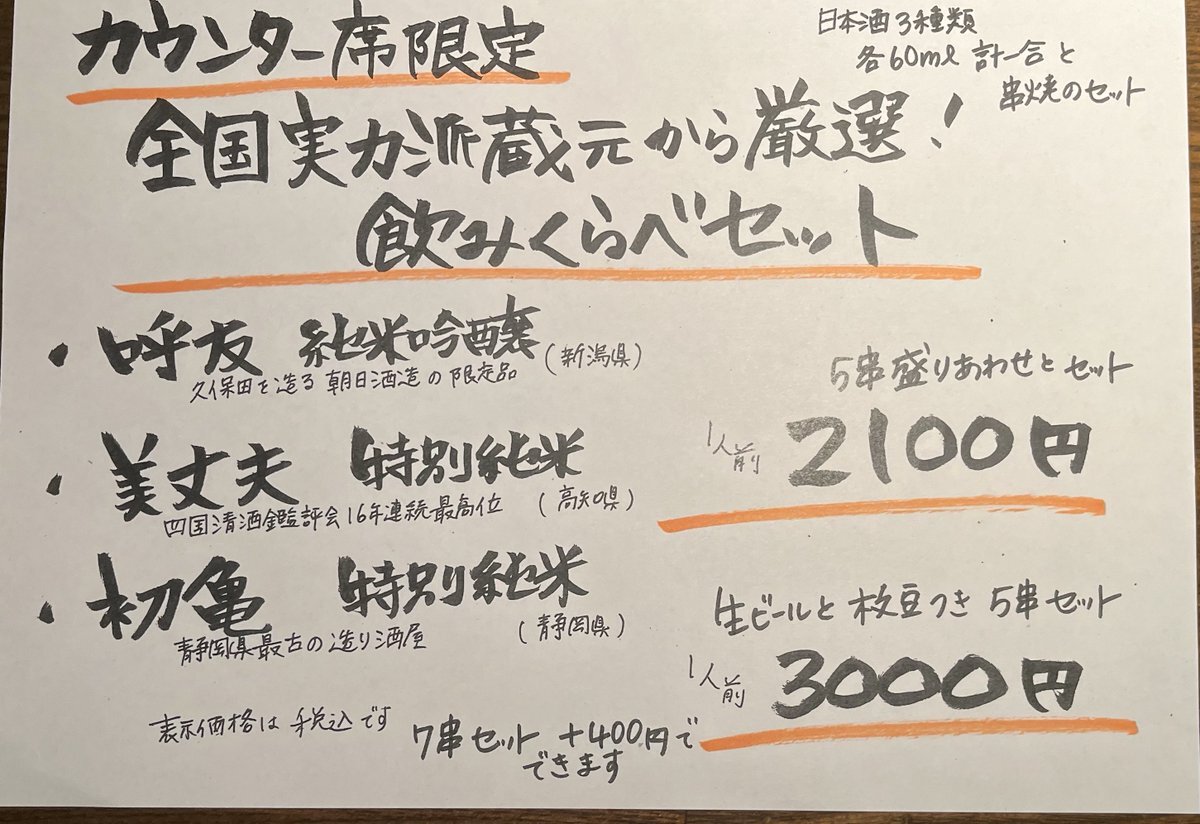 カウンター席限定
日本酒3種類
各60ml 計一合と
串焼のセット
全国実力派蔵元から厳選!
飲みくらべセット
・呼友 純米吟醸 (新潟県)
久保田を造る 朝日酒造の限定品
・美丈夫 特別純米 (高知県)
四国清酒鑑評会16年連続最高位
・初亀 特別純米 (静岡県)
静岡県最古の造り酒屋
5串盛りあわせとセット
1人前 2100円
生ビールと枝豆つき 5串セット
1人前 3000円
表示価格は税込です
7串セット +400円で
できます